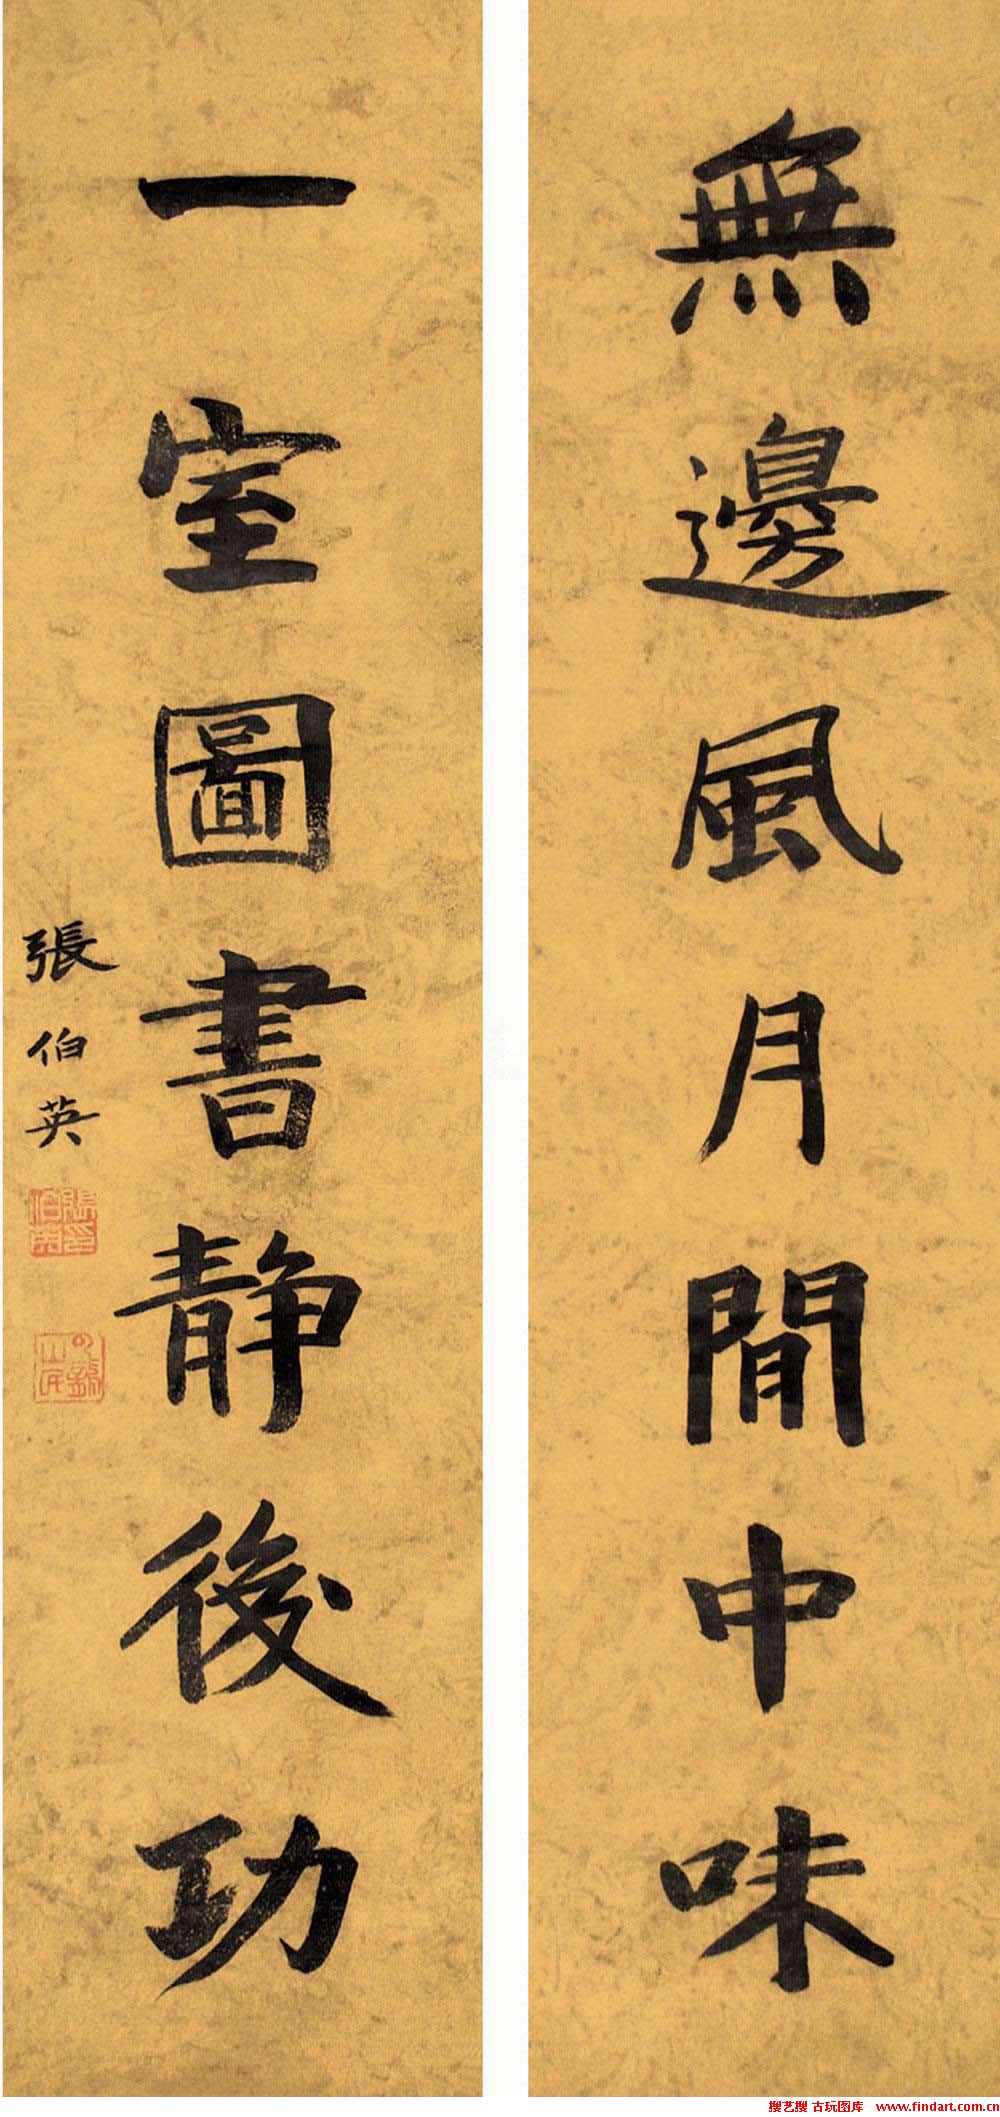 無邊風月閒中味
一室圖書静後功
張伯英
張伯英印
搜艺搜 古玩图库 www.findart.com.cn